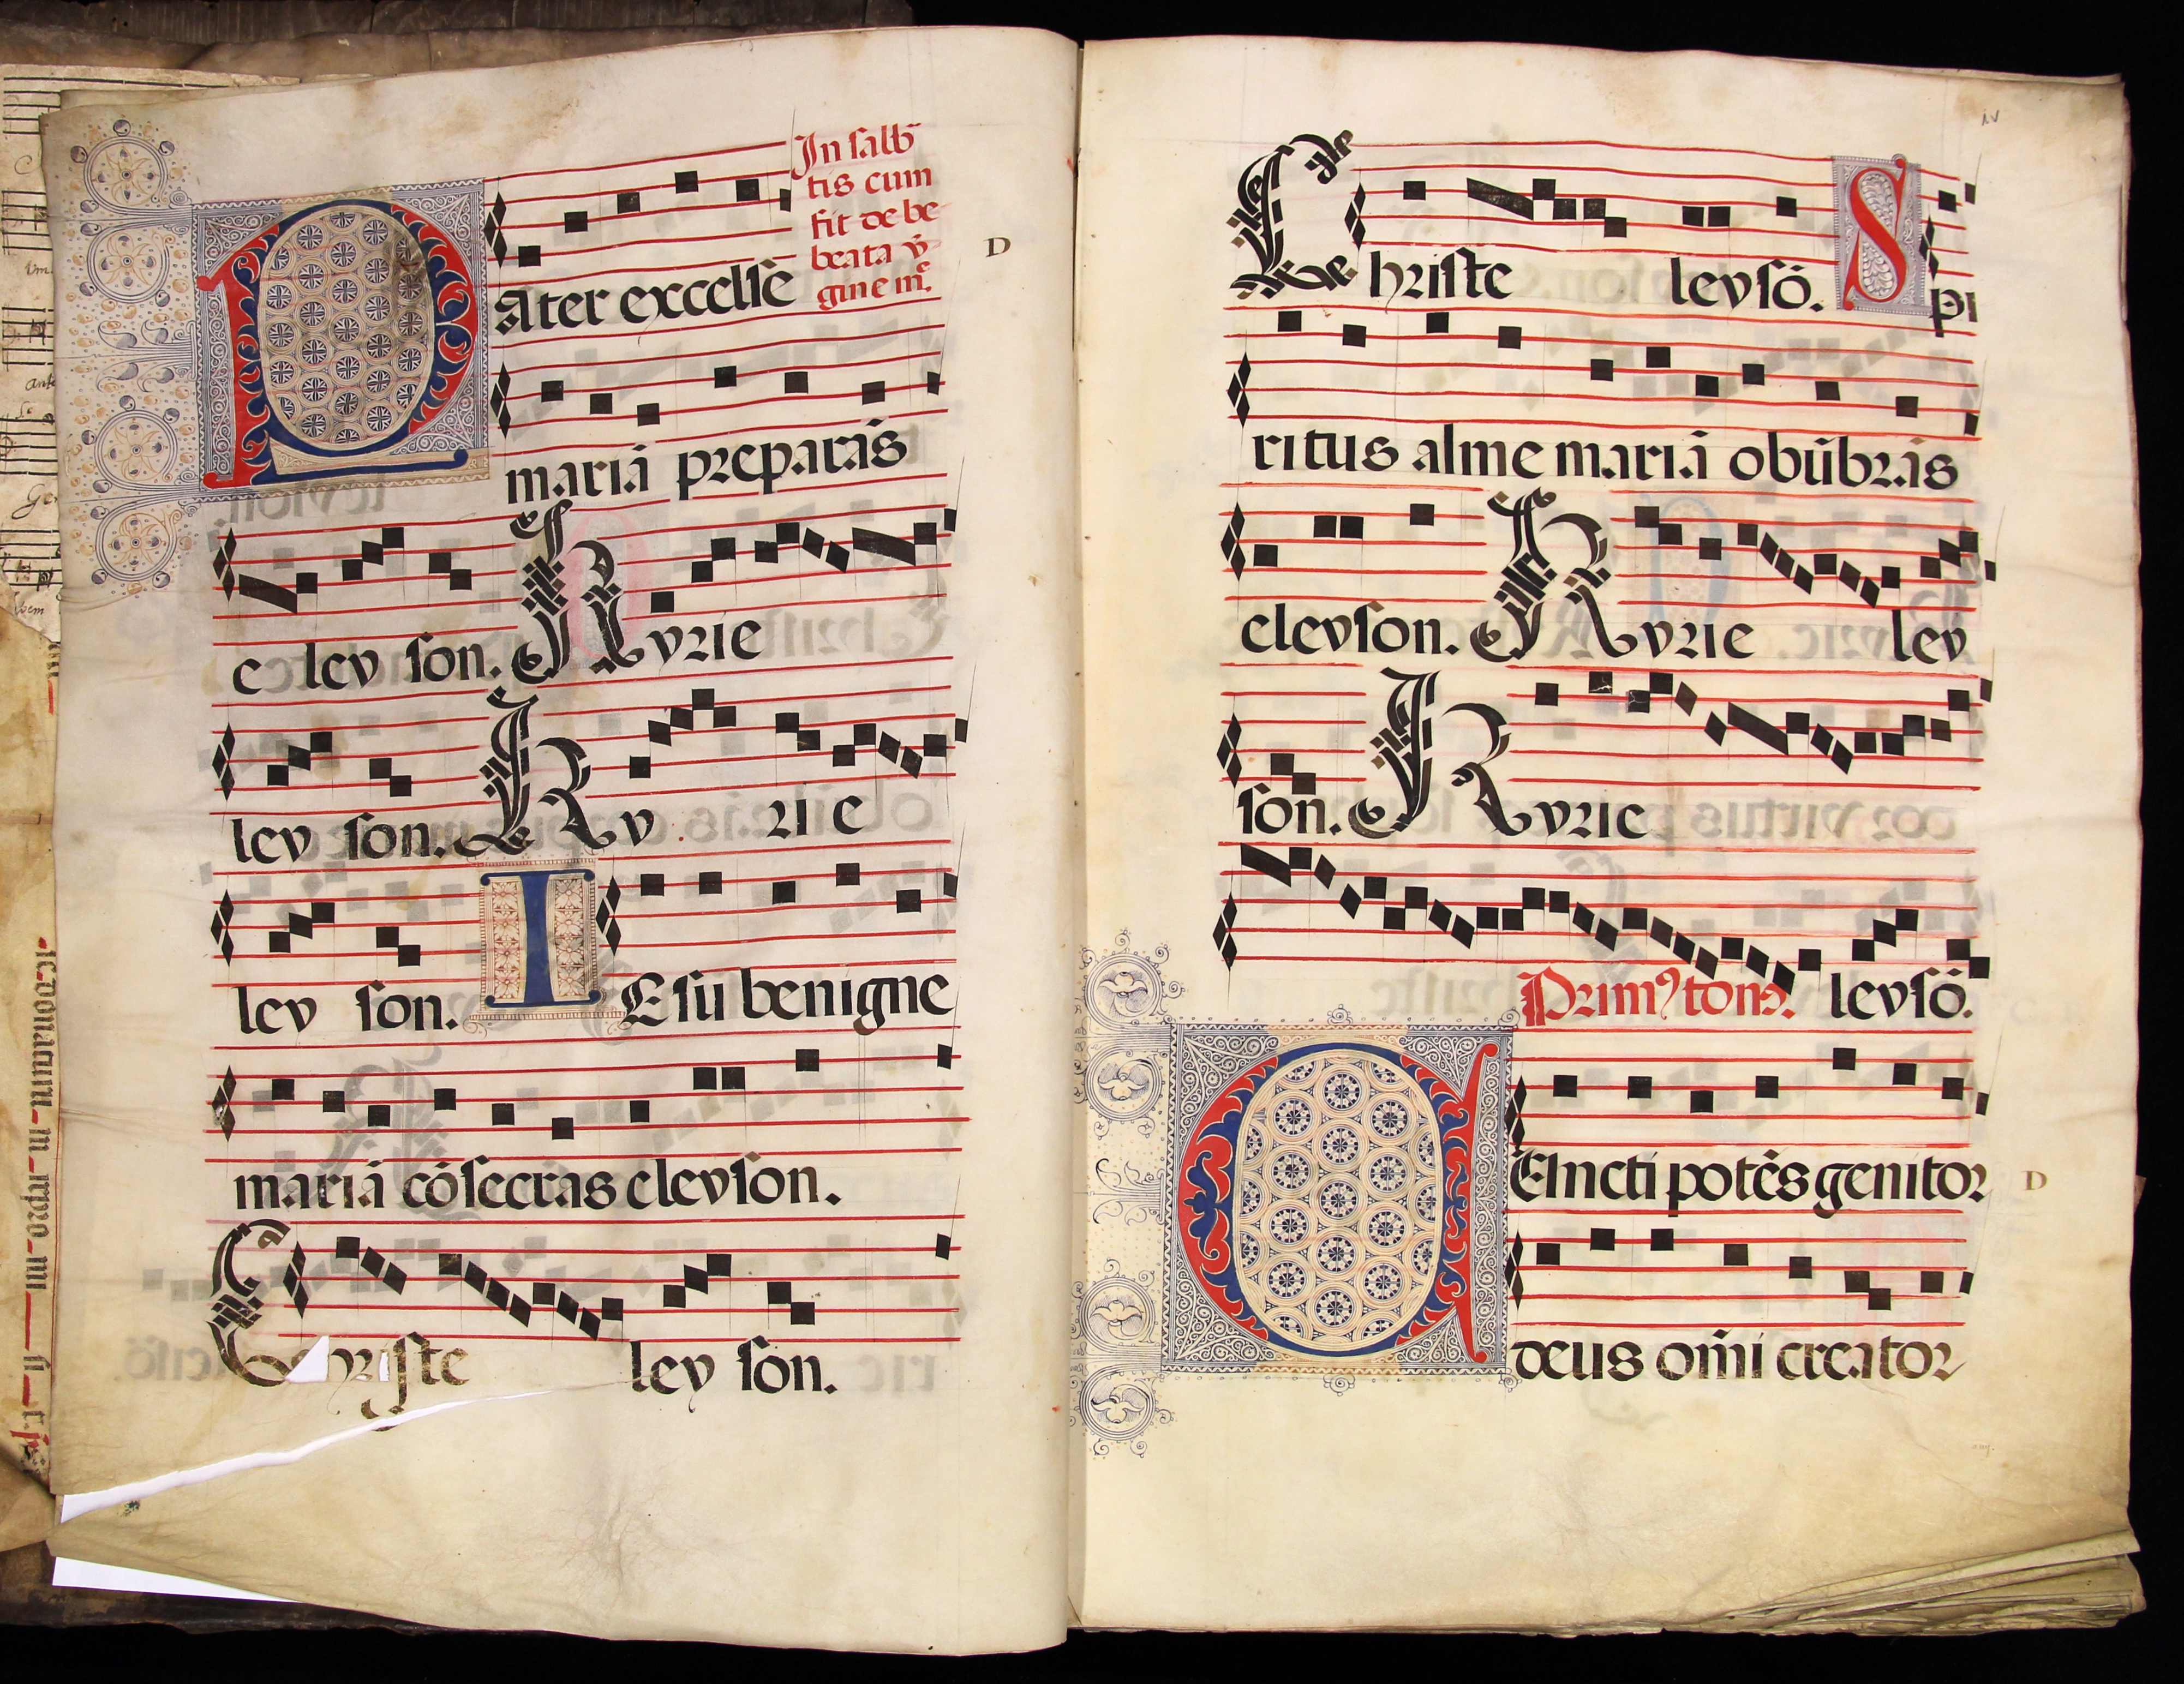 In salb̄
tis cum
fit de be
beata v̄
gine m̄.
D
Pater excelse
mariā preparās
e leyson. Kyrie
leyson. Kyrie
leyson. IEsu benigne
mariā cōsecras eleyson.
Christe leyson.
iv
Christe leysō. Spi
ritus alme mariā obūbrās
eleyson. Kyrie ley
son. Kyrie
Primꝯ tonꝯ. leysō.
CEuncti potēs genitor
D
deus om̄i creator